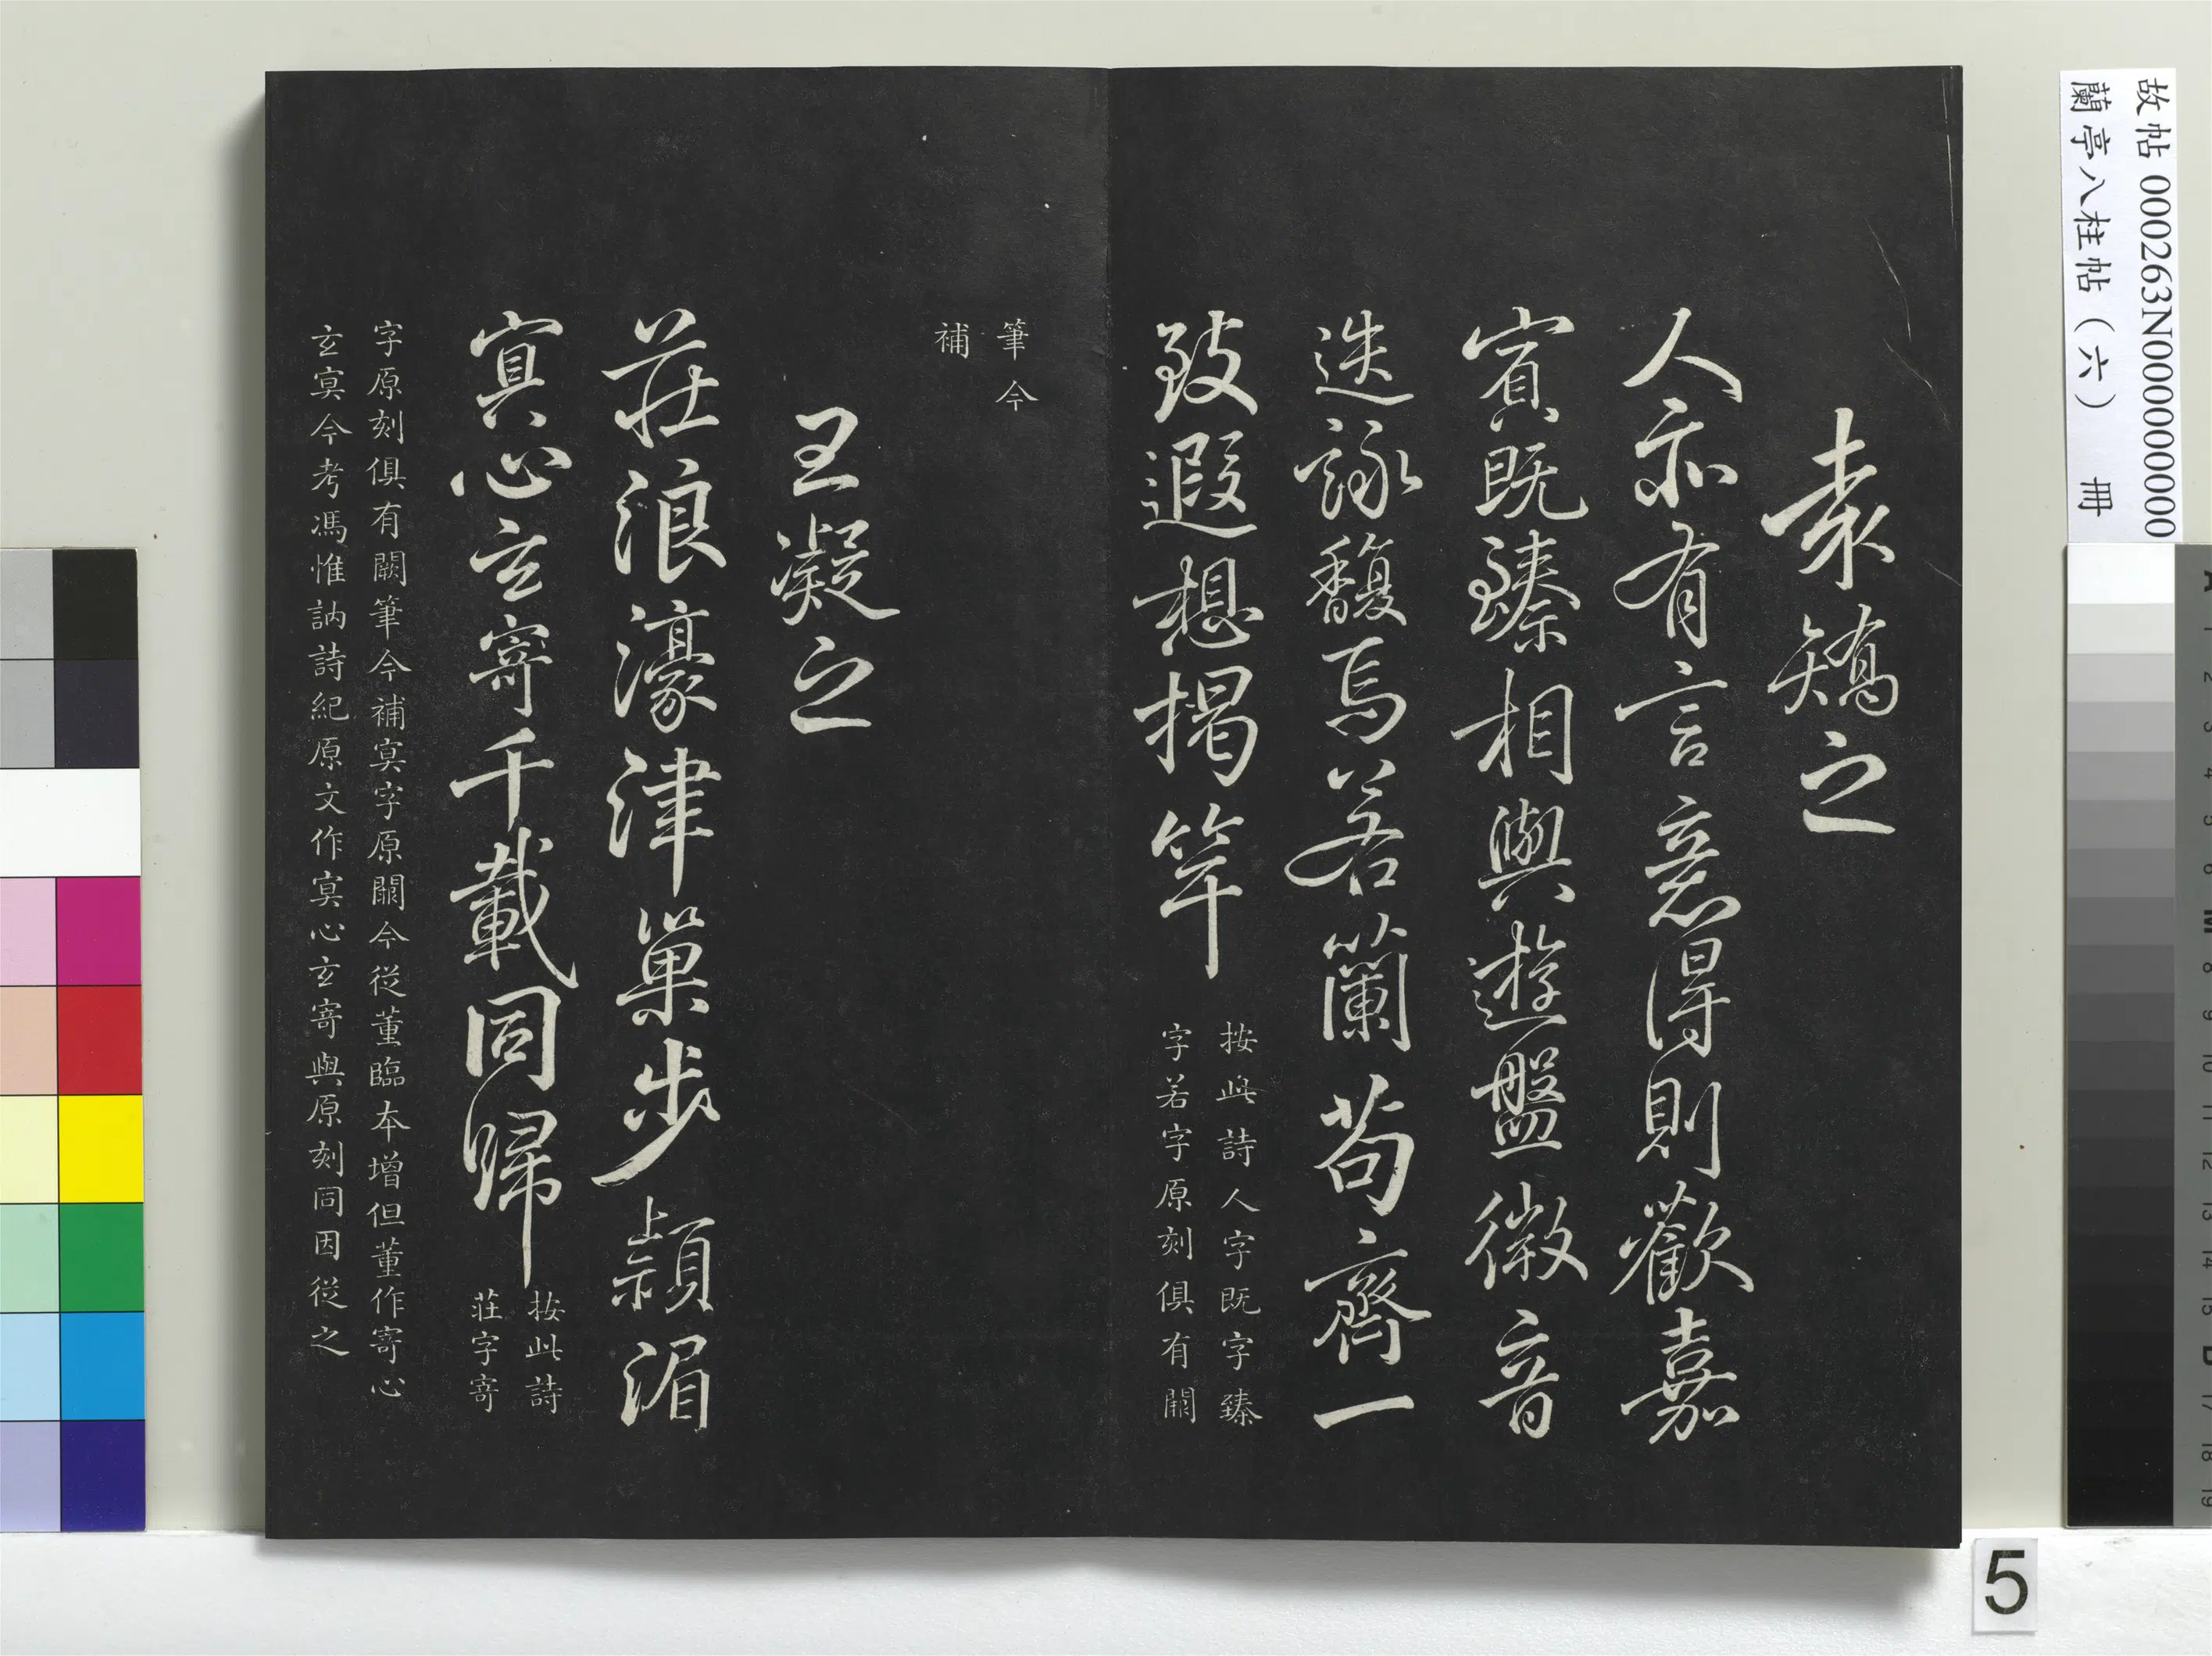 袁矯之
人亦有言意得則歡嘉
賓既臻相與遊盤徽音
迭詠馥焉若蘭苟齊一
致遐想揭竿
按此詩人字既字臻
字若字原刻俱有闕
筆今
補
王凝之
莊浪濠津巢步潁湄
寘心玄寄千載同歸
按此詩
莊字寄
字原刻俱有闕筆今補寘字原闕今從董臨本增但董作寄心
玄寘今考馮惟訥詩紀原文作寘心玄寄與原刻同因從之
故帖 000263N000000000
蘭亭八柱帖（六） 冊
5